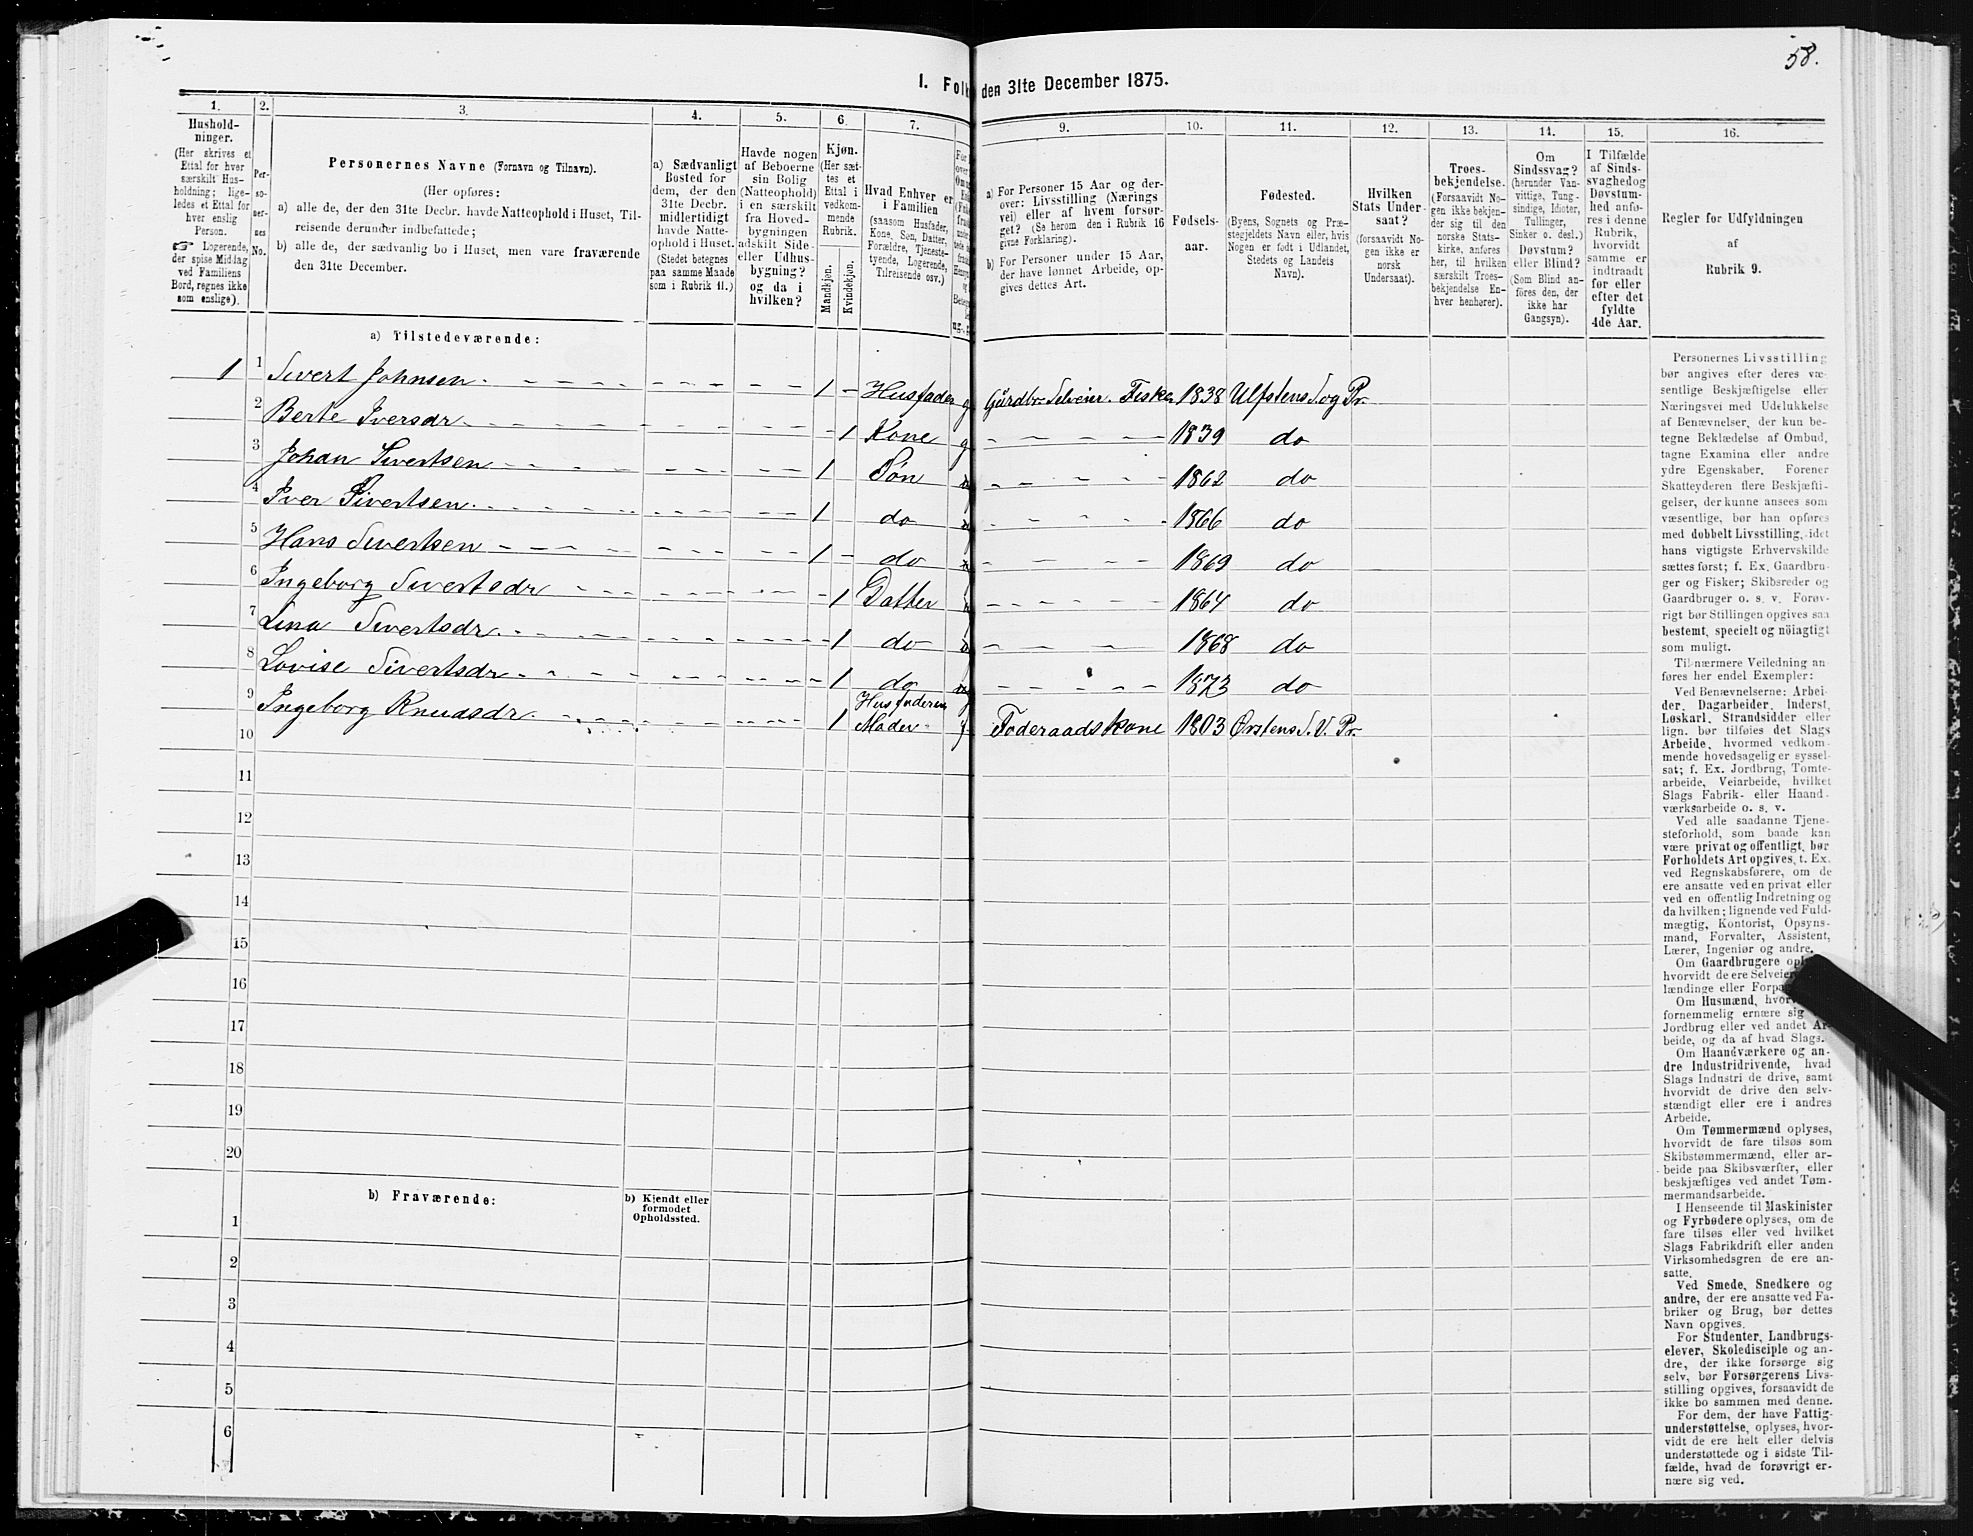 58.
I. Fol
den 31te December 1875.
1. 2. 3. 4. 5. 6. 7. 9. 10. 11. 12. 13. 14. 15. 16.
Hushold-
ninger.
(Her skrives et
Ettal for hver
særskilt Hus-
holdning; lige-
ledes et Ettal for
hver enslig
Person.
☞ Logerende,
der spise Middag
ved Familiens
Bord, regnes ikke
som enslige).
Per-
so-
ner-
nes
No.
Personernes Navne (Fornavn og Tilnavn).
(Her opføres:
a) alle de, der den 31te Decbr. havde Natteophold i Huset, Til-
reisende derunder indbefattede;
b) alle de, der sædvanlig bo i Huset, men vare fraværende
den 31te December.
a) Sædvanligt
Bosted for
dem, der den
31te Decbr.
midlertidigt
havde Natte-
ophold i Huset.
(Stedet betegnes
paa samme Maade
som i Rubrik 11.)
Havde nogen
af Beboerne
sin Bolig
(Natteophold)
i en særskilt
fra Hoved-
bygningen
adskilt Side-
eller Udhus-
bygning?
og da i
hvilken?
Kjøn.
(Her sæt-
tes et
Ettal i
vedkom-
mende
Rubrik.
Mandkjøn.
Kvindekjøn.
Hvad Enhver er
i Familien
(saasom Husfader,
Kone, Søn, Datter,
Forældre, Tjeneste-
tyende, Logerende,
Tilreisende osv.)
a) For Personer 15 Aar og der-
over: Livsstilling (Nærings-
vei) eller af hvem forsør-
get? (Se herom den i Rubrik 16
givne Forklaring).
b) For Personer under 15 Aar,
der have lønnet Arbeide, op-
gives dettes Art.
Fødsels-
aar.
Fødested.
(Byens, Sognets og Præ-
stegjeldets Navn eller, hvis
Nogen er født i Udlandet,
Stedets og Landets
Navn).
Hvilken
Stats Under-
saat?
(forsaavidt No-
gen ikke er
norsk
Undersaat).
Troes-
bekjendelse.
(Forsaavidt No-
gen ikke bekjen-
der sig til den
norske Stats-
kirke, anføres
her, til hvilken
særskilt Troes-
bekjendelse En-
hver henhører).
Om
Sindssvag?
(herunder Van-
vittige, Tung-
sindige, Idioter,
Tullinger,
Sinker o. desl.)
Døvstum?
eller Blind?
(Som Blind an-
føres den, der
ikke har
Gangsyn).
I Tilfælde
af Sinds-
svaghed og
Døvstum-
hed anfø-
res i denne
Rubrik,
hvorvidt
samme er
indtraadt
før eller
efter det
fyldte
4de Aar.
Regler for Udfyldningen
af
Rubrik 9.
a) Tilstedeværende:
1 1 Sivert Johnsen 1 Husfader g Gaardbr. Selveier. Fisker 1838 Ulfstens S. og Pr.
2 Berte Iversdr 1 Kone g 1839 do
3 Johan Sivertsen 1 Søn 1862 do
4 Iver Sivertsen 1 do 1866 do
5 Hans Sivertsen 1 do 1869 do
6 Ingeborg Sivertsdr 1 Datter 1864 do
7 Lina Sivertsdr 1 do 1868 do
8 Lovise Sivertsdr 1 do 1873 do
9 Ingeborg Knudsdr 1 Husfaderens Moder Føderaadskone 1803 Ørstens S. V. Pr.
10
11
12
13
14
15
16
17
18
19
20
b) Fraværende:
b) Kjendt eller
formodet
Opholdssted.
1
2
3
4
5
6
Personernes Livsstilling
bør angives efter deres væ-
sentlige Beskjæftigelse eller
Næringsvei med Udelukkelse
af Benævnelser, der kun be-
tegne Beklædelse af Ombud,
tagne Examina eller andre
ydre Egenskaber. Forener
Skatteyderen flere Beskjæfti-
gelser, der kunne ansees som
væsentlige, bør han opføres
med dobbelt Livsstilling, idet
hans vigtigste Erhvervskilde
sættes først; f. Ex. Gaardbru-
ger og Fisker; Skibsreder og
Gaardbruger o. s. v. Forøv-
rigt bør Stillingen opgives saa
bestemt, specielt og nøiagtigt
som muligt.
Til nærmere Veiledning an-
føres her endel Exempler:
Ved Benævnelserne: Arbei-
der, Dagarbeider, Inderst,
Løskarl, Strandsidder eller
lign. bør tilføies det Slags
Arbeide, hvormed vedkom-
mende hovedsagelig er syssel-
sat; f. Ex. Jordbrug, Tomte-
arbeide, Veiarbeide, hvilket
Slags Fabrik- eller Haand-
værksarbeide o. s. v.
Ved alle saadanne Tjene-
steforhold, som baade kan
være privat og offentligt, bør
Forholdets Art opgives, t. Ex.
ved Regnskabsførere, om de
ere ansatte ved en privat eller
ved en offentlig Indretning og
da hvilken; lignende ved Fuld-
mægtig, Kontorist, Opsyns-
mand, Forvalter, Assistent,
Lærer, Ingeniør og andre.
Om Gaardbrugere opl
hvorvidt de ere Selveie
lændinge eller Forpa
Om Husmænd, hvor
fornemmelig ernære sig
Jordbrug eller ved andet Ar-
beide, og da af hvad Slags.
Om Haandværkere og an-
dre Industridrivende, hvad
Slags Industri de drive, samt
hvorvidt de drive den selv-
stændigt eller ere i andres
Arbeide.
Om Tømmermænd oplyses,
hvorvidt de fare tilsøs som
Skibstømmermænd, eller ar-
beide paa Skibsværfter, eller
beskjæftiges ved andet Tøm-
mermandsarbeide.
I Henseende til Maskinister
og Fyrbødere oplyses, om de
fare tilsøs eller ved hvilket
Slags Fabrikdrift eller anden
Virksomhedsgren de ere an-
satte.
Ved Smede, Snedkere og
andre, der ere ansatte ved Fa-
briker og Brug, bør dettes
Navn opgives.
For Studenter, Landbrugs-
elever, Skoledisciple og an-
dre, der ikke forsørge sig
selv, bør Forsørgerens Livs-
stilling opgives, forsaavidt de
ikke bo sammen med denne.
For dem, der have Fattig-
understøttelse, oplyses, hvor-
vidt de ere helt eller delvis
understøttede og i sidste Til-
fælde, hvad de forøvrigt er-
nære sig ved.